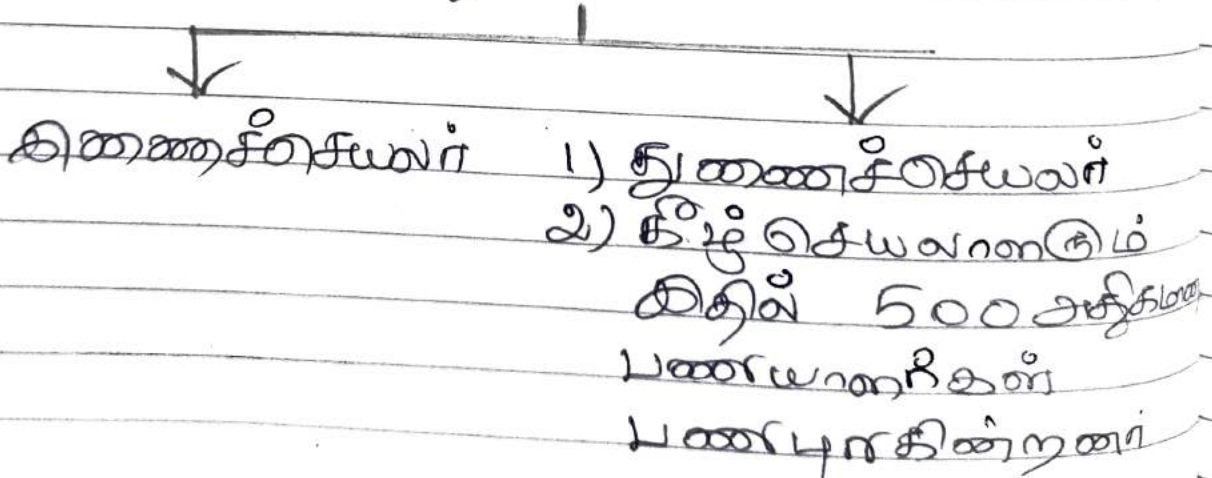 இணைச்செயலர்
1) துணைச்செயலர்
2) கீழ் செயலாளரும்
இதில் 500 அதிகமான
பணியாளர்கள்
பணிபுரிகின்றனர்